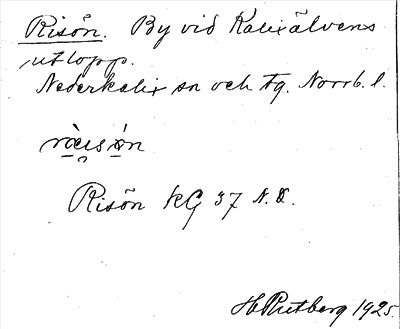 Risön. By vid Kalixälvens
utlopp.
Nederkalix sn och tg. Norrb. l.
Risön KG 37 N.O.
H Pletberg 1925.